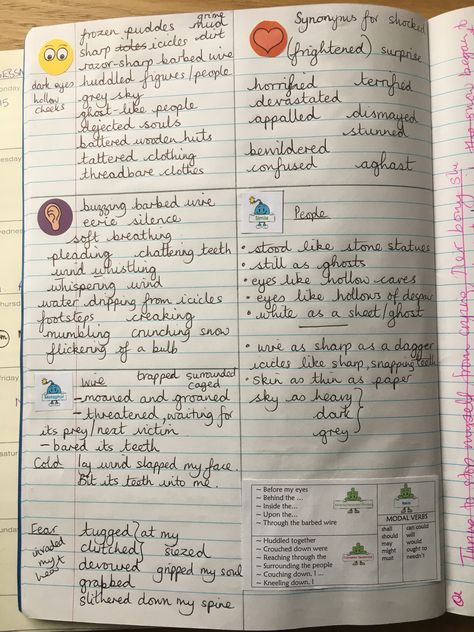 grime
frozen puddles mud
sharp icicles dirt
razor-sharp barbed wire
huddled figures/people
dark eyes
hollow
cheeks
grey sky
ghost like people
dejected souls
battered wooden huts
tattered clothing
threadbare clothes
Synonyms for shocked
(frightened) surprise
horrified terrified
devastated
appalled dismayed
stunned
bewildered
confused aghast
buzzing barbed wire
eerie silence
soft breathing
pleading chattering teeth
wind whistling
whispering wind
water dripping from icicles
footsteps creaking
mumbling crunching snow
flickering of a bulb
Simile
People
• stood like stone statues
• still as ghosts
• eyes like hollow caves
• eyes like hollows of despair
• white as a sheet/ghost
• wire as sharp as a dagger
icicles like sharp, snapping teeth
• skin as thin as paper
sky as heavy
dark
grey
Metaphor
Wire trapped surrounded
caged
- moaned and groaned
- threatened, waiting for
its prey/next victim
- bared its teeth
Cold
Icy wind slapped my face.
Bit its teeth into me.
Fear
tugged } at my
clutched } siezed
devoured gripped my soul
grabbed
slithered down my spine
~ Before my eyes
~ Behind the ...
~ Inside the...
~ Upon the...
~ Through the barbed wire
~ Huddled together
~ Crouched down were
~ Reaching through the
~ Surrounding the people
~ Couching down, I ...
~ Kneeling down, I
MODAL VERBS
shall can could
should will
may would
might ought to
must needn't